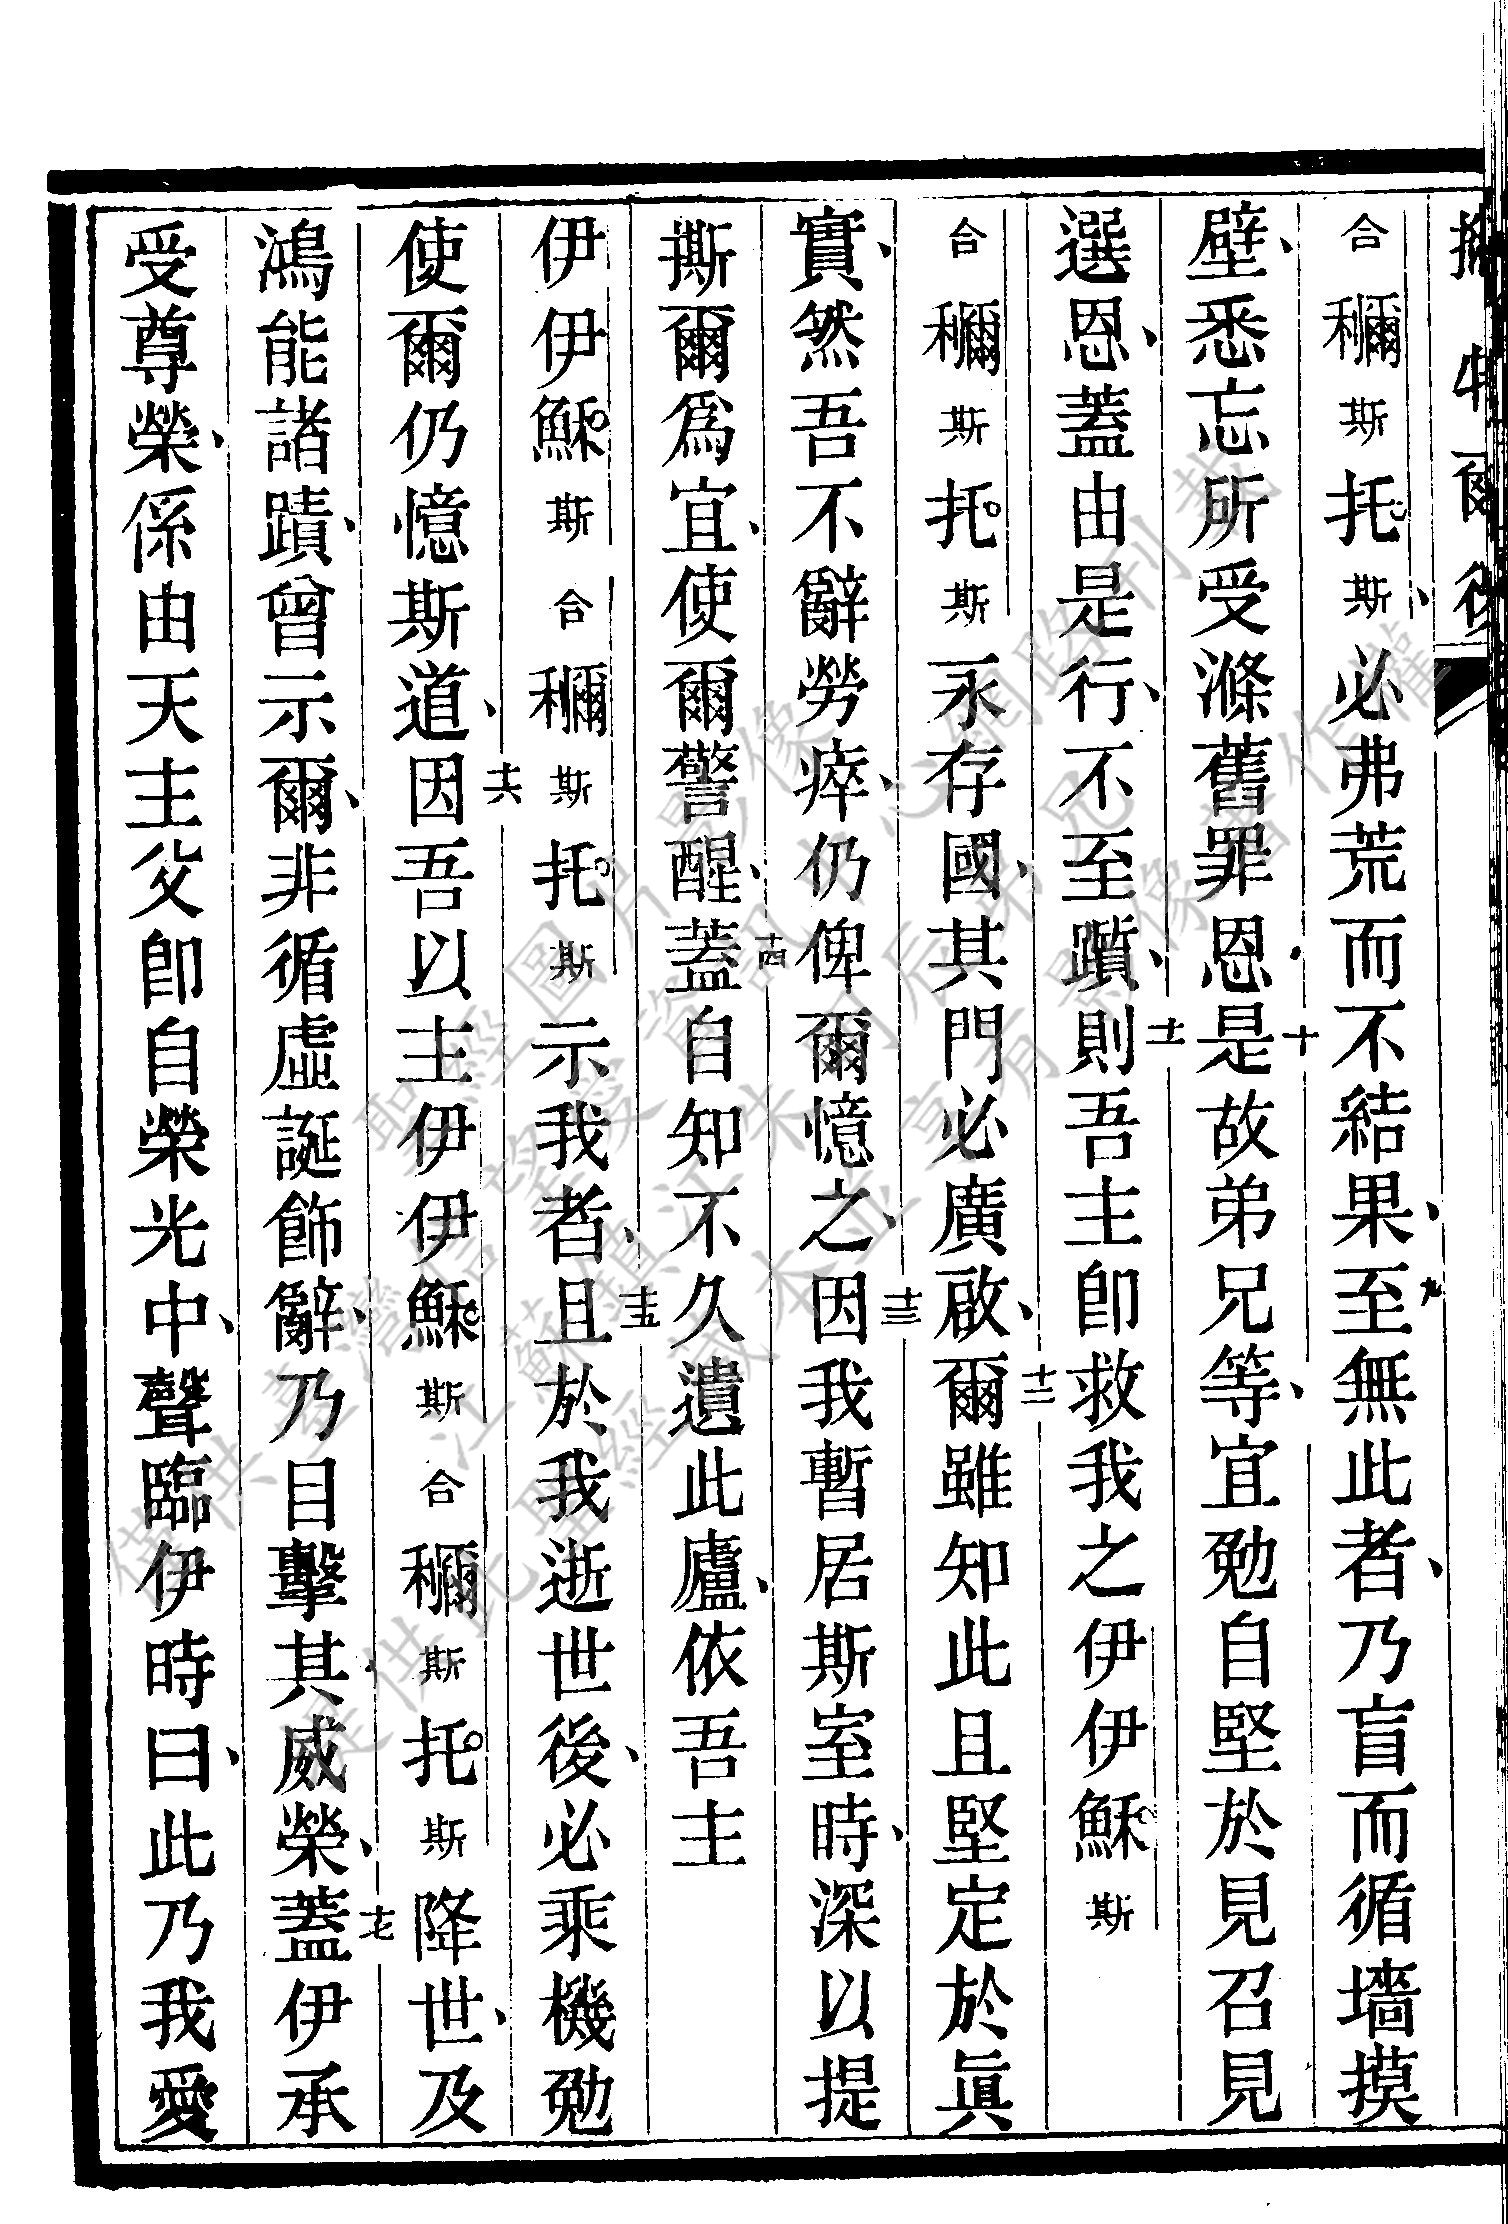 合穪斯托斯必弗荒而不結果、至九無此者、乃盲而循墻摸
壁、悉忘所受滌舊罪恩、是十故弟兄等、宜勉自堅於見召見
選恩、蓋由是行、不至躓、則十一吾主卽救我之伊伊穌斯
合穪斯托斯永存國、其門必廣啟、爾十二雖知此且堅定於眞
實、然吾不辭勞瘁、仍俾爾憶之、因十三我暫居斯室時、深以提
撕爾爲宜、使爾警醒、蓋十四自知不久遺此廬、依吾主
伊伊穌斯合穪斯托斯示我者、且十五於我逝世後、必乘機勉
使爾仍憶斯道、因十六吾以主伊伊穌斯合穪斯托斯降世、及
鴻能諸蹟、曾示爾、非循虛誕飾辭、乃目擊其威榮、蓋十七伊承
受尊榮、係由天主父卽自榮光中、聲臨伊時曰、此乃我愛
僅供臺灣信望愛資訊中心網路刊載
聖經圖片影像
提供此聖經版本並享有影像著作權